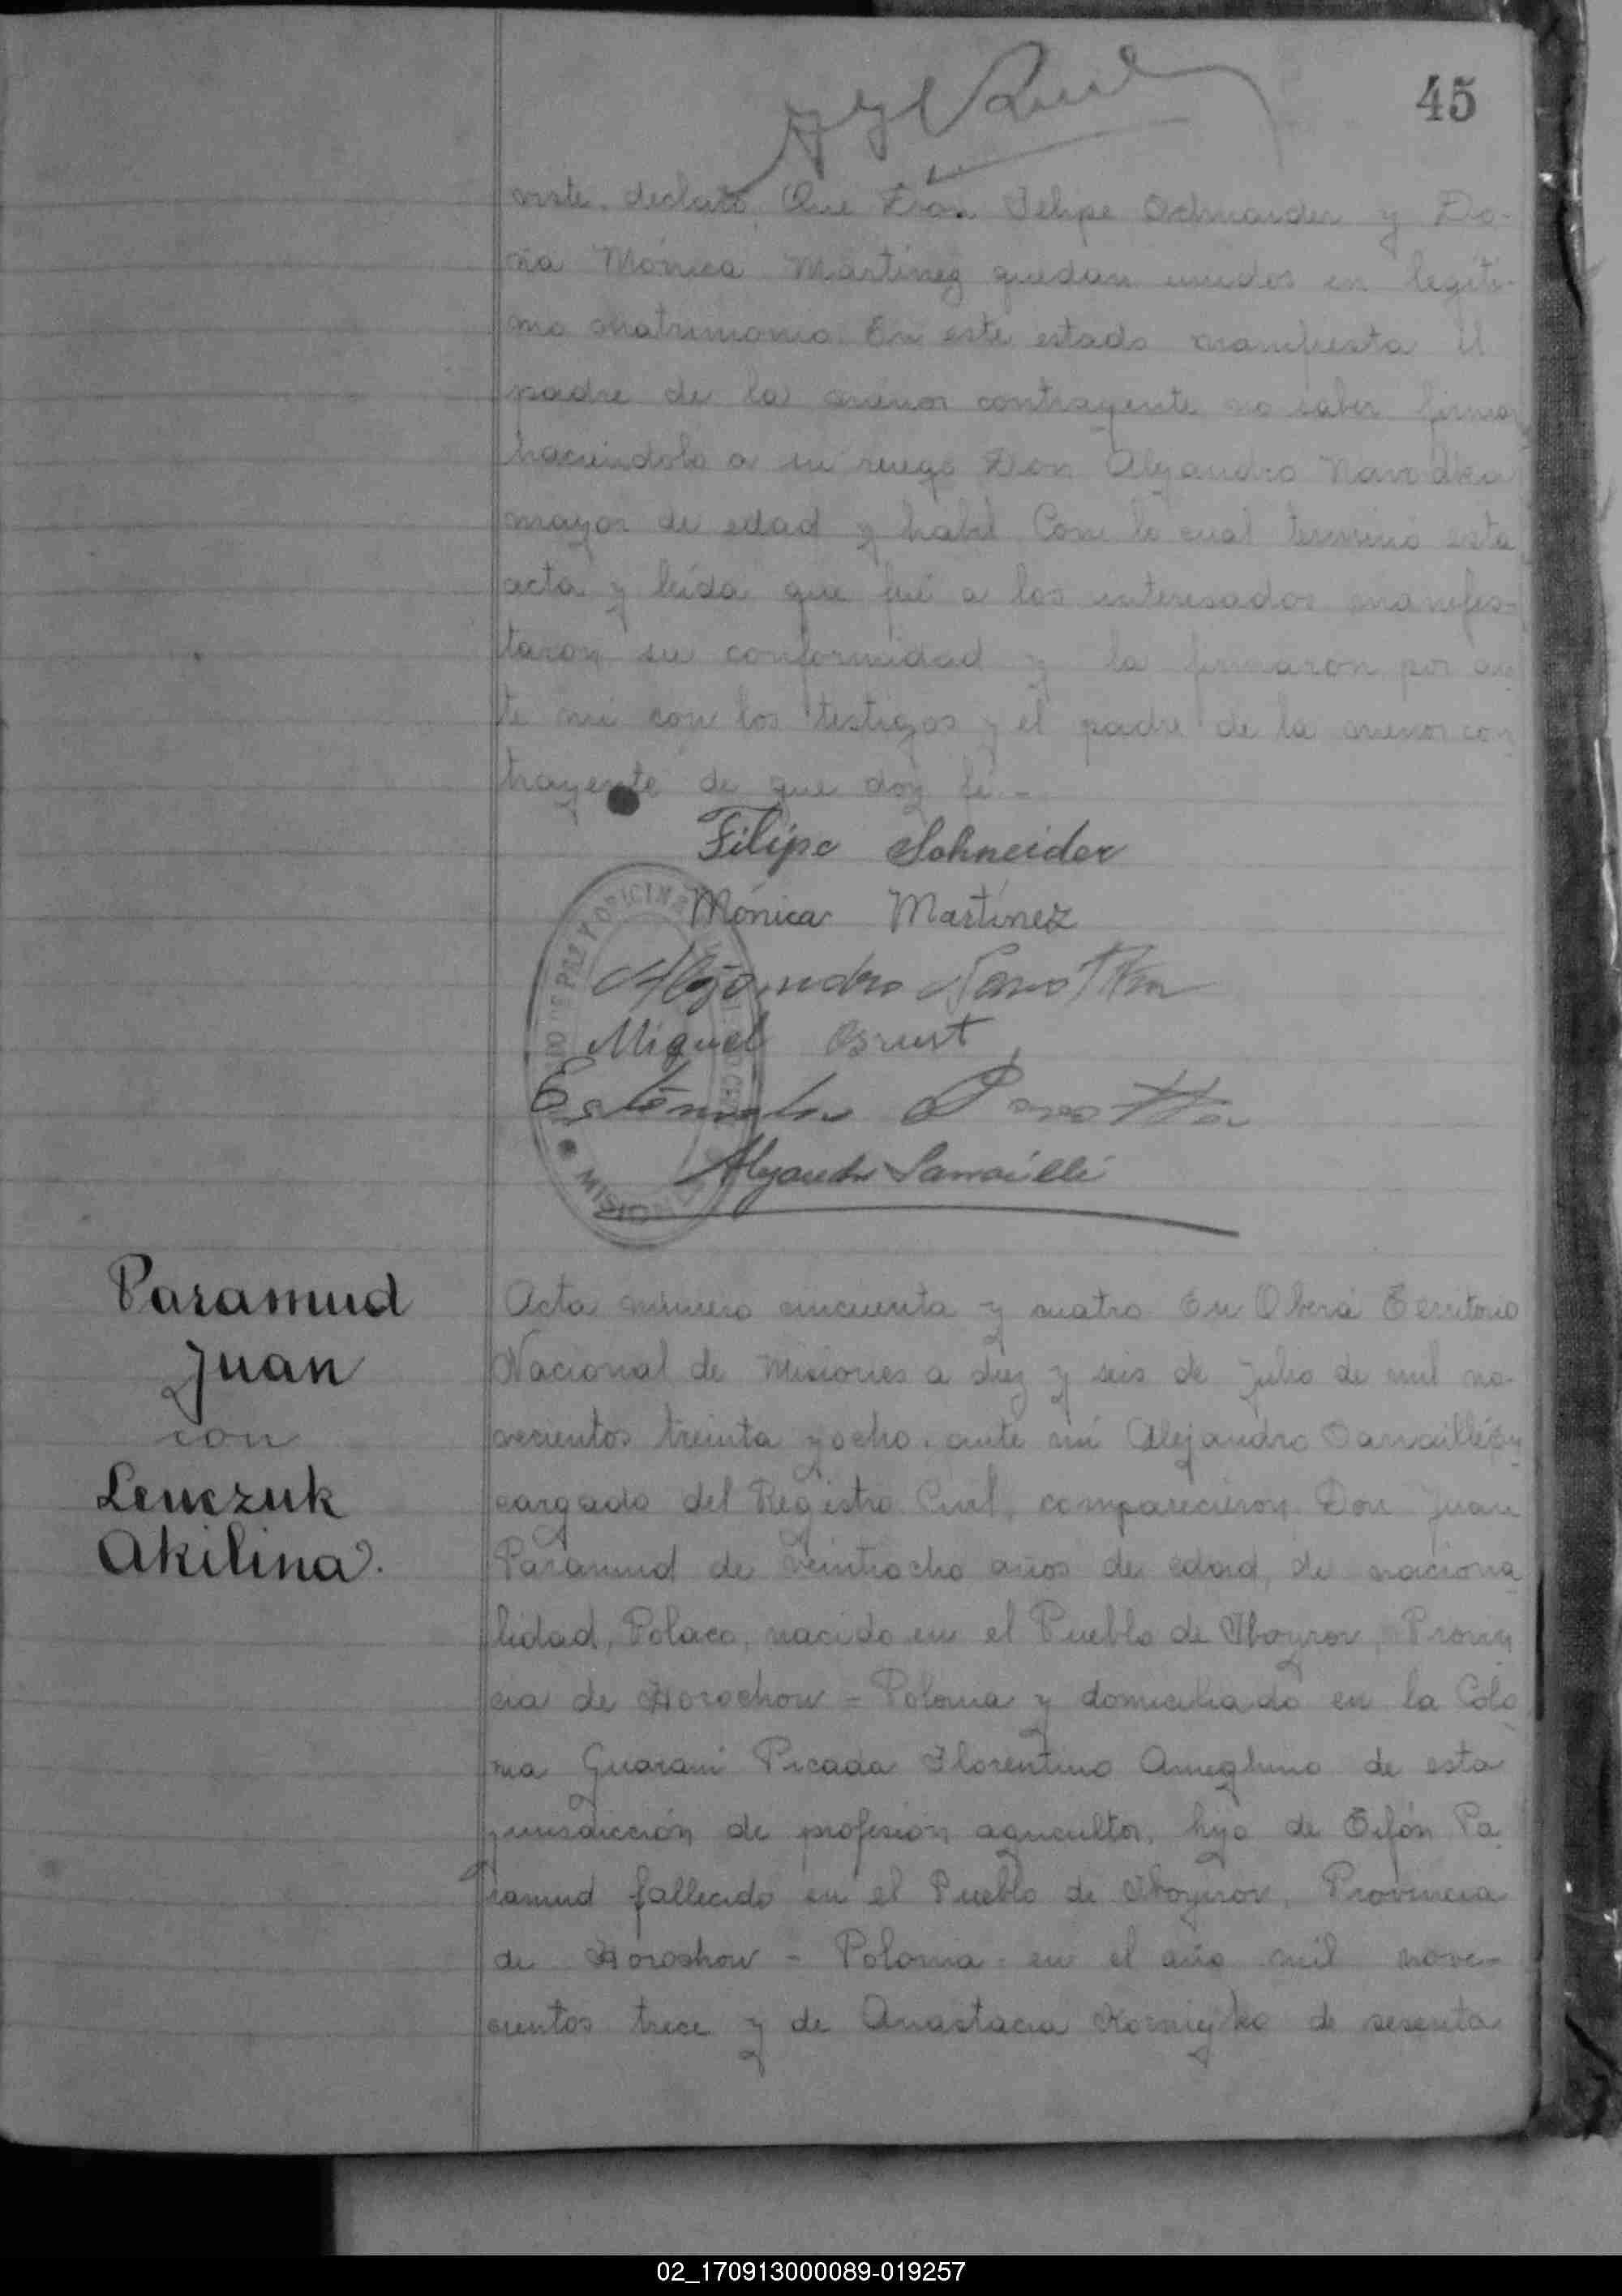 45
viste, declaro, Que Don Felipe Schnaider y Do-
ña Mónica Martínez quedan unidos en legíti-
mo matrimonio. En este estado manifiesta el
padre de la menor contrayente no saber firmar
haciéndolo a su ruego Don Alejandro
mayor de edad y habil. Con lo cual terminó esta
acta y leída que fué a los interesados manifes-
taron su conformidad y la firmaron por an-
te mí con los testigos y el padre de la menor con
trayente de que doy fé -
Filipe Schneider
Mónica Martínez
Alejandro
Miguel
Alejandro Sarraillé
MISIONES
Paramud
Juan
con
Lewczuk
Akilina.
Acta número cincuenta y cuatro. En Oberá Territorio
Nacional de Misiones a diez y seis de Julio de mil no-
vecientos treinta y ocho, ante mí Alejandro Sarraillé, en
cargado del Registro Civil, comparecieron Don Juan
Paramud de veintiocho años de edad, de naciona
lidad, Polaco, nacido en el Pueblo de Provin
cia de Horochow - Polonia y domiciliado en la Colo
nia Guaraní Picada Florentino Ameghino de esta
jurisdicción de profesión agricultor, hijo de Pa
ramud fallecido en el Pueblo de Provincia
de Horoshow - Polonia - en el año mil nove-
cientos trece y de Anastacia de sesenta
02_170913000089-019257